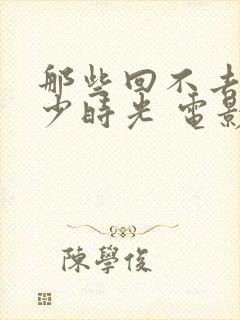 那些回不去
少時光 電影
陳學俊